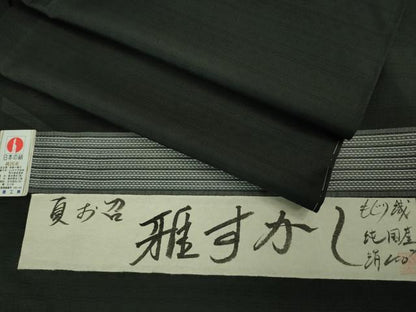 日本の絹
夏お召
雅すかし
もじり織
純国産
絹100%